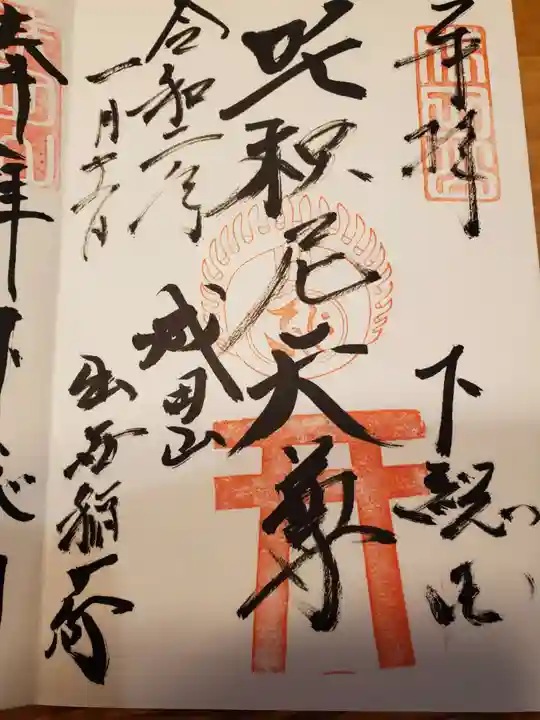 奉拝
下総国
吒枳尼天尊
成田山
出世稲荷
令和二年
一月十一日
奉拝
下総国